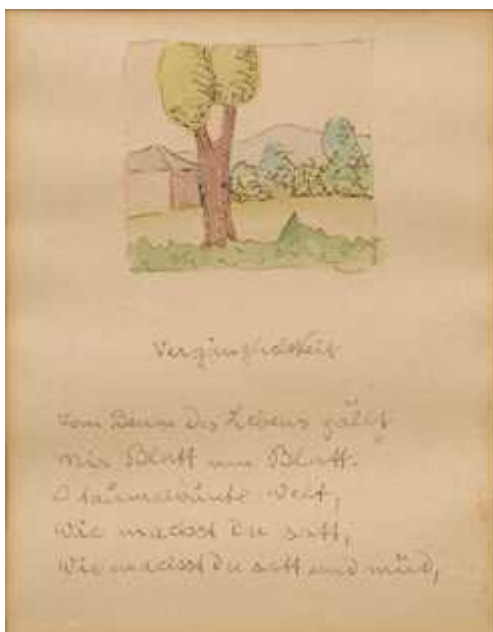 Vergänglichkeit
Vom Baum des Lebens fällt
Mir Blatt um Blatt.
O taumelbunte Welt,
Wie machst du satt,
Wie machst du satt und müd,